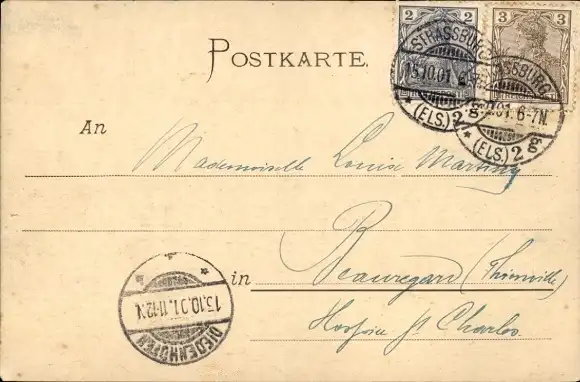 2
3
POSTKARTE.
STRASSBURG
15.10.01.
(ELS.) 2 g
STRASSBURG
15.10.01. 6-7N.
(ELS.) 2 g
An
Mademoiselle Louise Martiny
in
Beauregard (Thionville)
Hospice St Charles
DIEDENHOFEN
15.10.01. 11-12N.